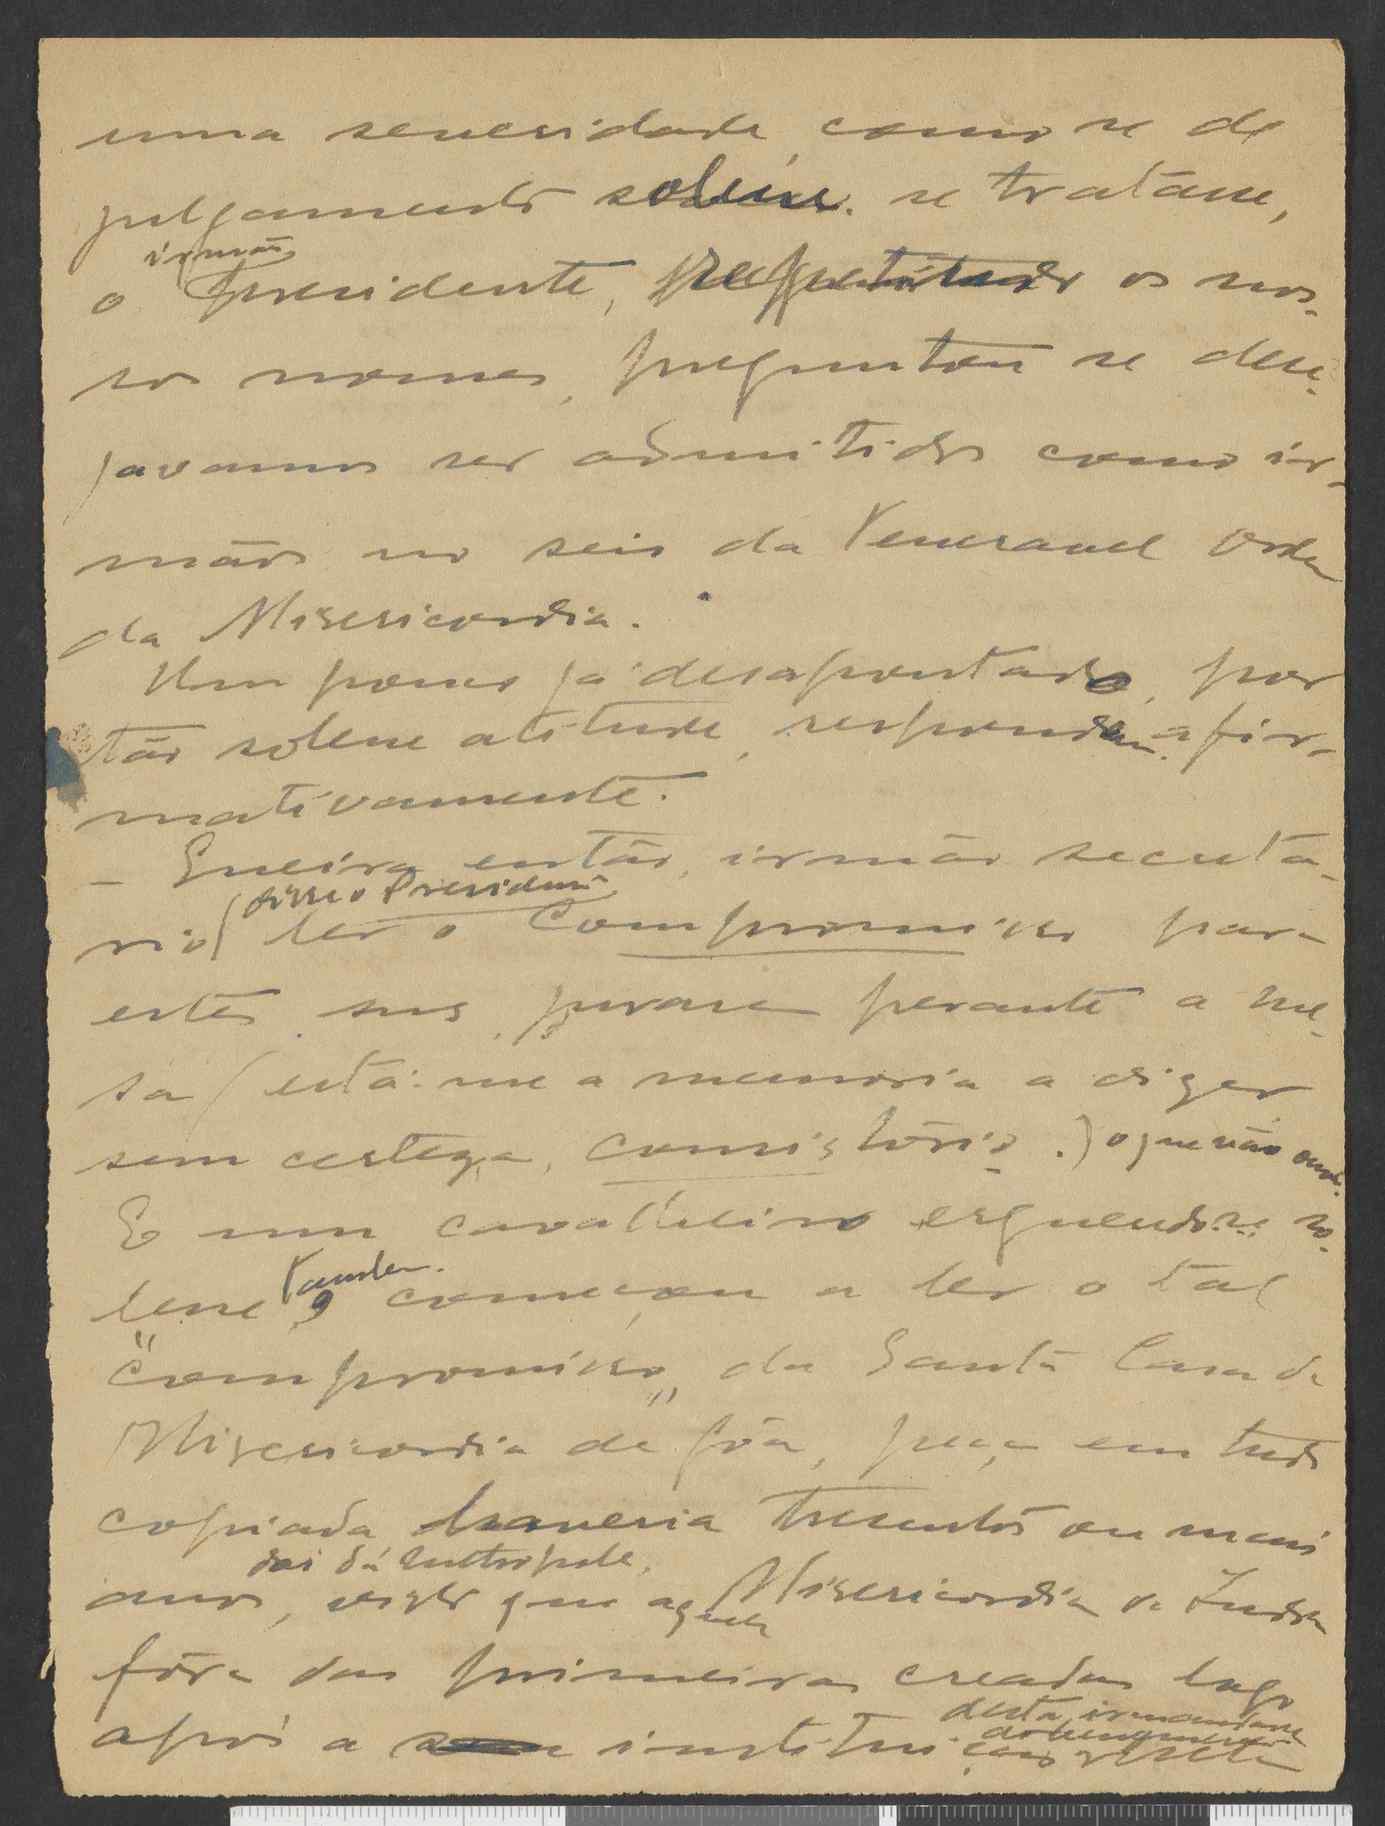 uma severidade como se de
julgamento solene se tratásse,
irmão
o Presidente, os nos-
sos nomes, preguntou se dese-
javamos ser admitidos como ir-
mãos no seio da Veneravel Ordem
da Misericordia.
Um pouco já desapontado, por
tão solene atitude, respondeu afir-
mativamente.
- Queira então, irmão secretá-
disse o Presidente
rio ler o Compromisso para
estes snrs. jurarem perante a me-
sa (está-me a memoria a dizer
sem certeza, consistório.) o que não
E um cavalheiro erguendo-se so-
lene, começou a ler o tal
"compromisso" da Santa Casa da
Misericordia de Gôa, peça em tudo
copiada haveria tresentos ou mais
da metropole,
anos, visto que aquela Misericordia da India
fôra das primeiras creadas logo
desta irmandade
após a instituição